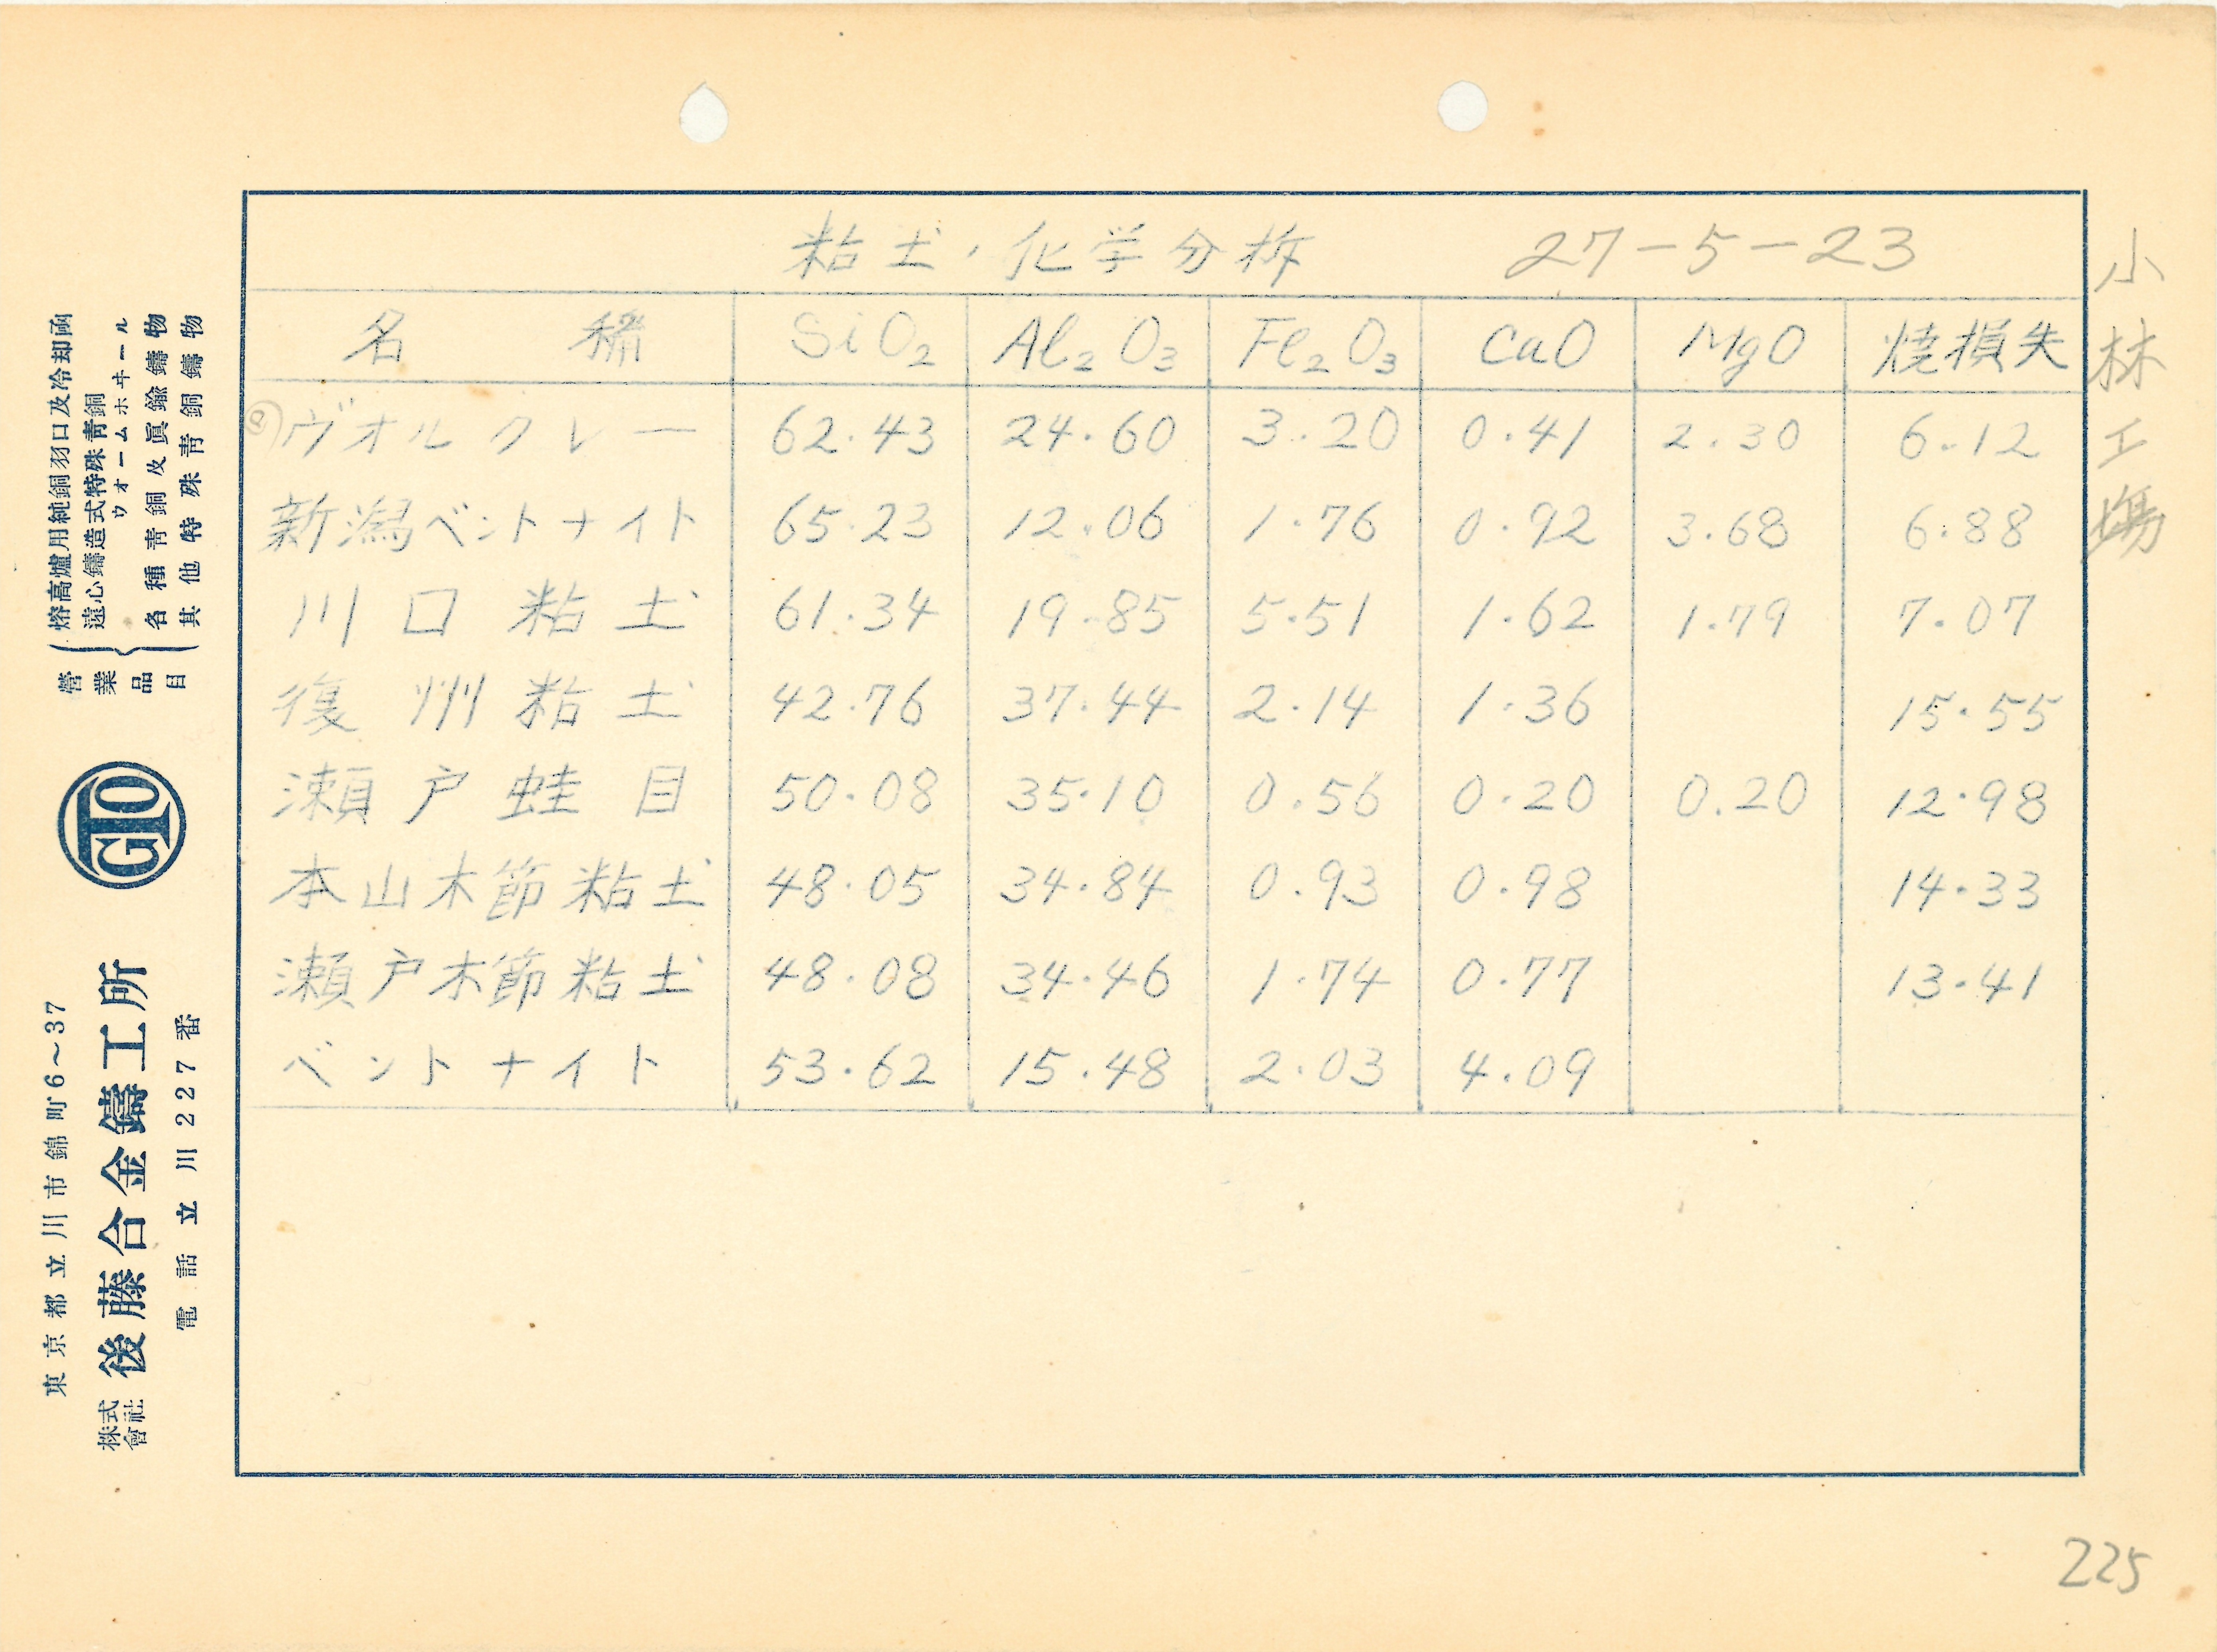 粘土ノ化学分析 27-5-23
名称 SiO₂ Al₂O₃ Fe₂O₃ CaO MgO 焼損失
ヴオルクレー 62.43 24.60 3.20 0.41 2.30 6.12
新潟ベントナイト 65.23 12.06 1.76 0.92 3.68 6.88
川口粘土 61.34 19.85 5.51 1.62 1.79 7.07
復州粘土 42.76 37.44 2.14 1.36 15.55
瀬戸蛙目 50.08 35.10 0.56 0.20 0.20 12.98
本山木節粘土 48.05 34.84 0.93 0.98 14.33
瀬戸木節粘土 48.08 34.46 1.74 0.77 13.41
ベントナイト 53.62 15.48 2.03 4.09
小林工場
225
営業品目
熔高爐用純銅羽口及冷却函
遠心鑄造式特殊青銅
ウオームホヰール
各種青銅及眞鍮鑄物
其他特殊青銅鑄物
GTO
東京都立川市錦町6~37
株式會社 後藤合金鑄工所
電話立川227番